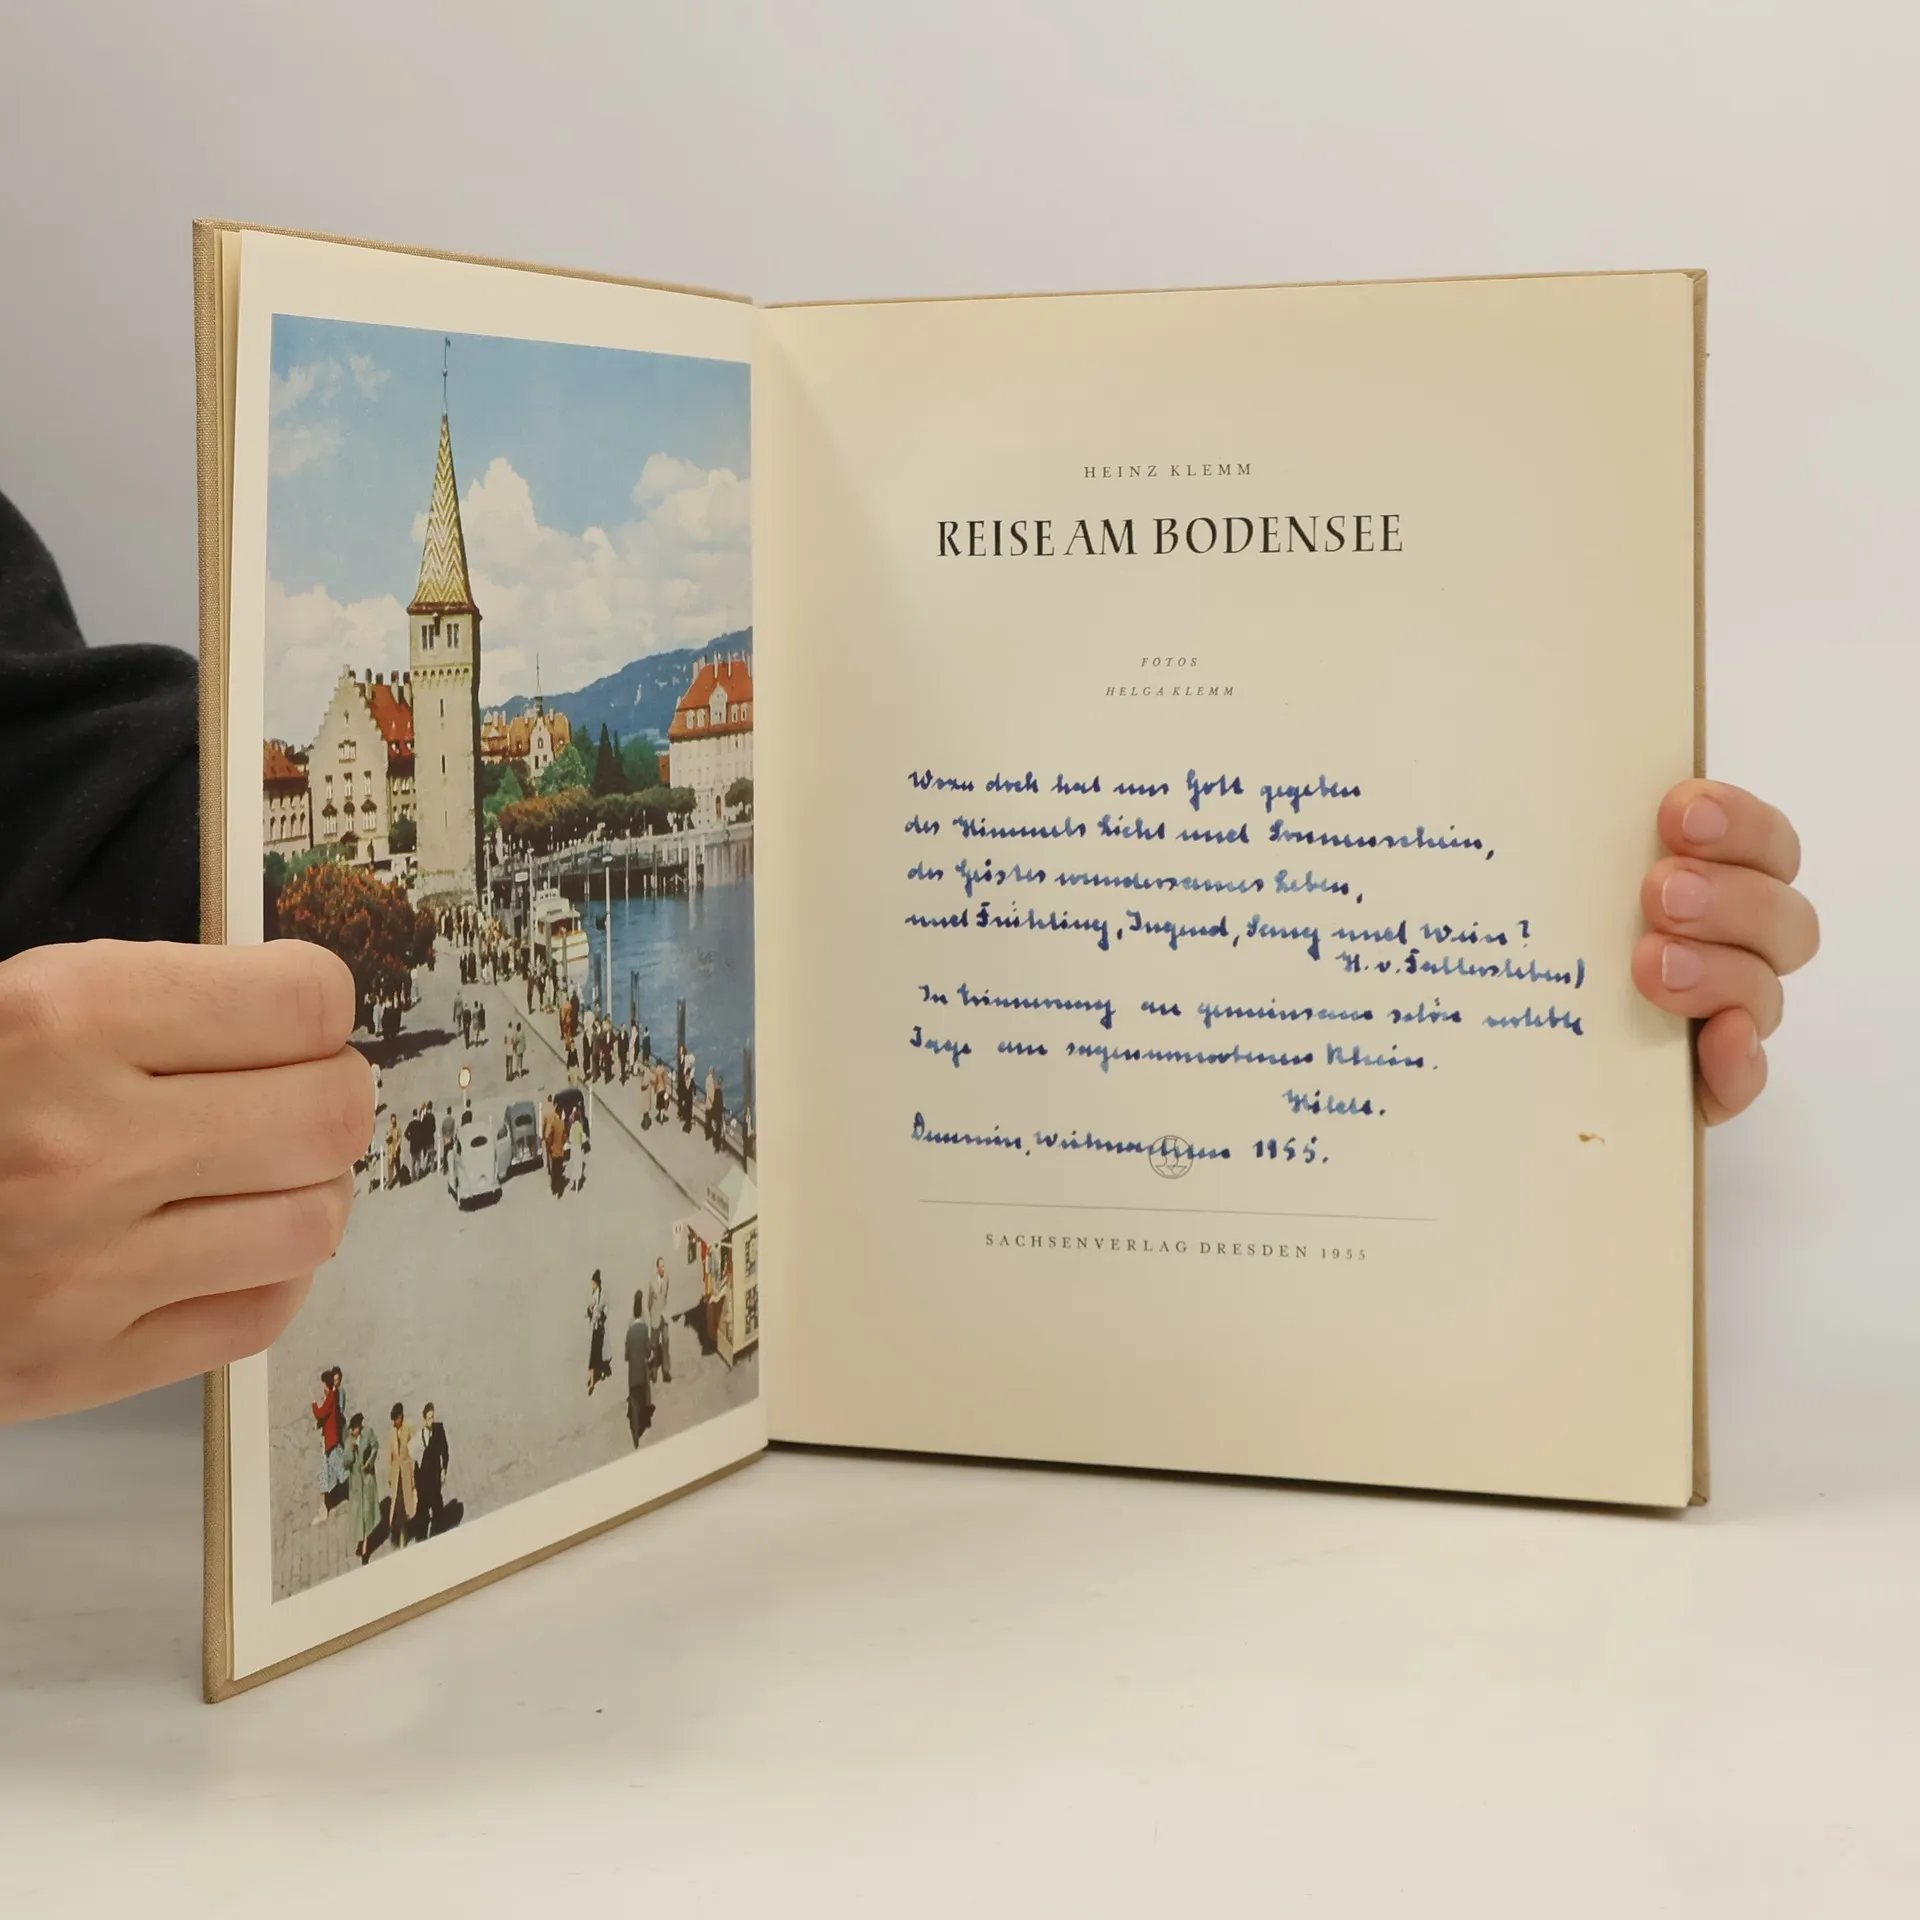 HEINZ KLEMM
REISE AM BODENSEE
FOTOS
HELGA KLEMM
Wozu doch hat uns Gott gegeben
des Himmels Licht und Sonnenschein,
des Geistes wundersames Leben,
und Frühling, Jugend, Sang und Wein?
H. v. Fallersleben)
In Erinnerung an gemeinsam schön verlebte
Tage am sagenumwobenen Rhein.
Demmin, Weihnachten 1955.
SACHSENVERLAG DRESDEN 1955